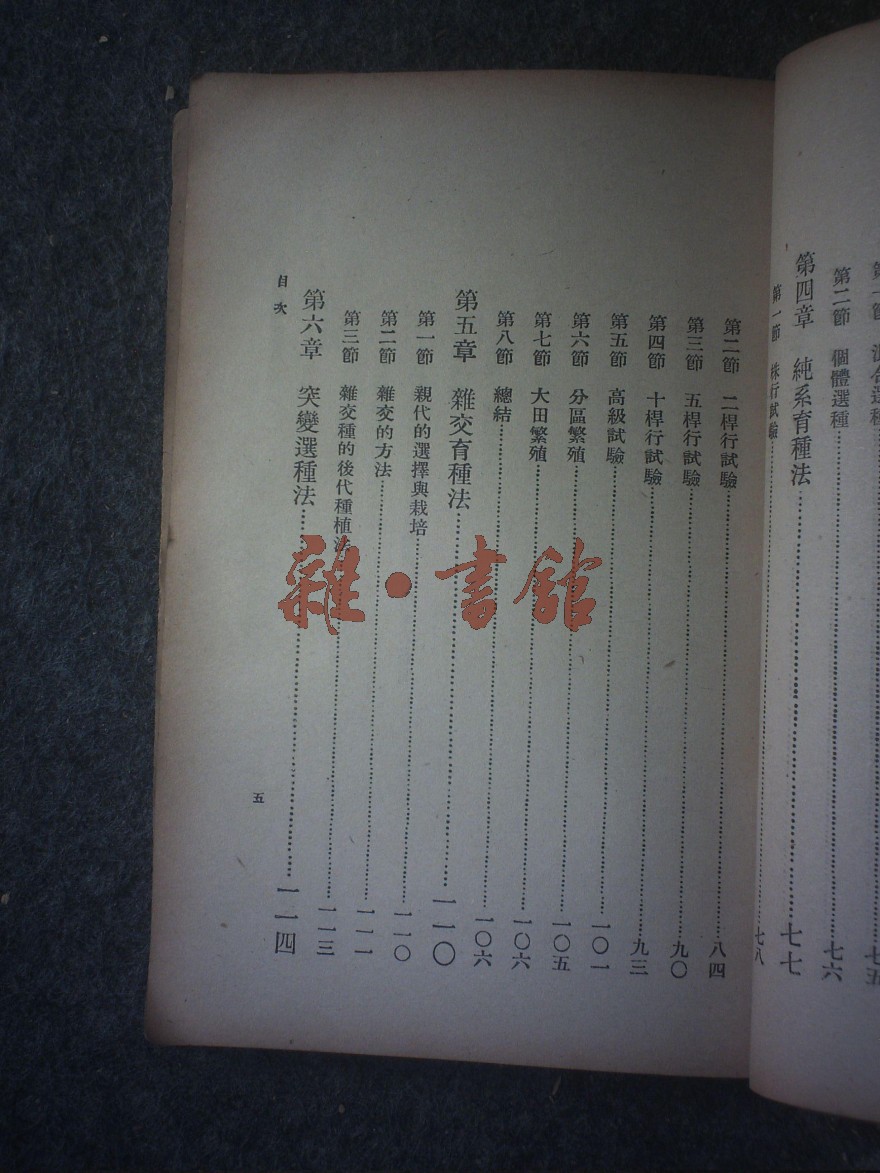 第二節 個體選種 七六
第四章 純系育種法 七七
第一節 株行試驗 七八
第二節 二桿行試驗 八四
第三節 五桿行試驗 九〇
第四節 十桿行試驗 九三
第五節 高級試驗 一〇一
第六節 分區繁殖 一〇五
第七節 大田繁殖 一〇六
第八節 總結 一〇六
第五章 雜交育種法 一一〇
第一節 親代的選擇與栽培 一一〇
第二節 雜交的方法 一一一
第三節 雜交種的後代種植法 一一三
第六章 突變選種法 一一四
目次
五
雜·書館